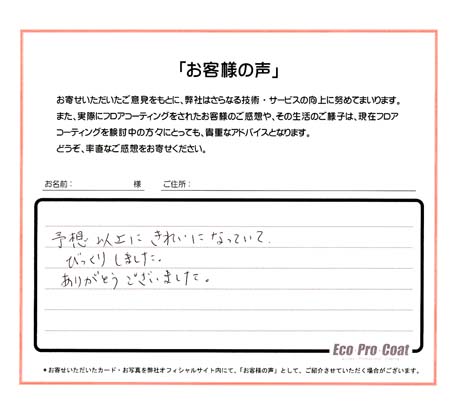 「お客様の声」
お寄せいただいたご意見をもとに、弊社はさらなる技術・サービスの向上に努めてまいります。
また、実際にフロアコーティングをされたお客様のご感想や、その生活のご様子は、現在フロア
コーティングを検討中の方々にとっても、貴重なアドバイスとなります。
どうぞ、率直なご感想をお寄せください。
お名前： 様 ご住所：
予想以上にきれいになっていて、
びっくりしました。
ありがとうございました。
Eco Pro Coat
＊お寄せいただいたカード・お写真を弊社オフィシャルサイト内にて、「お客様の声」として、ご紹介させていただく場合がございます。